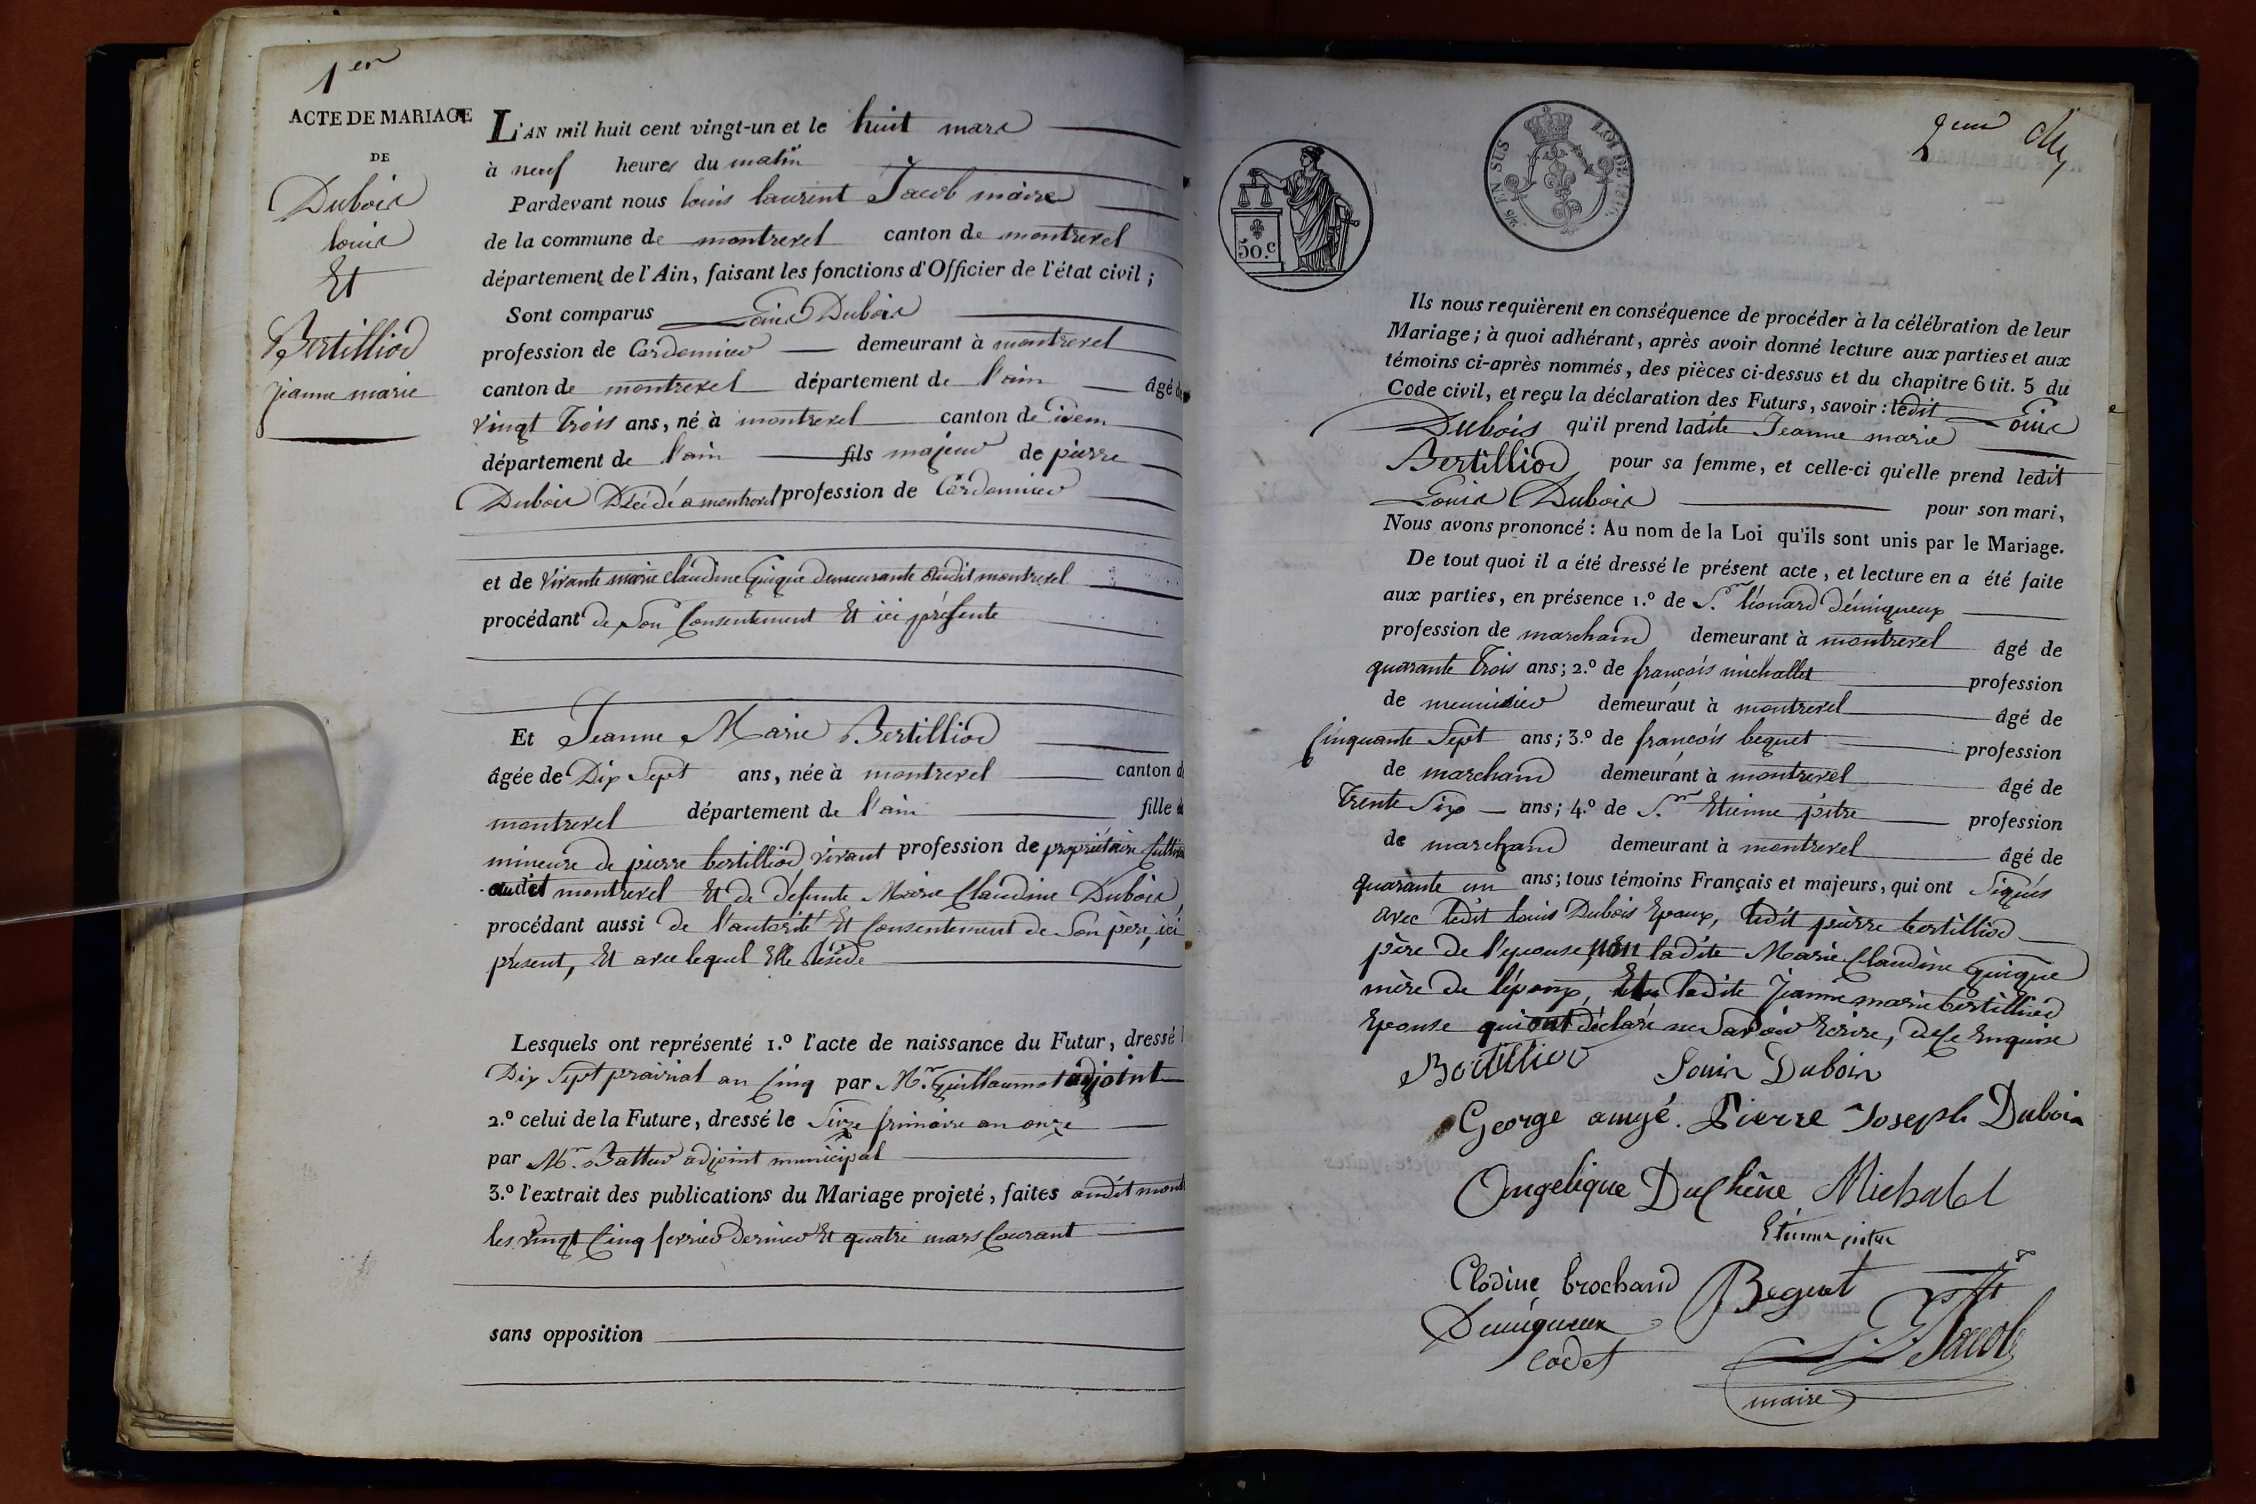 1er
ACTE DE MARIAGE
DE
Dubois
louis
Et
Bertilliod
jeanne marie
L'AN mil huit cent vingt-un et le huit mars
à neuf heures du matin
Pardevant nous louis laurent Jacob maire
de la commune de montrevel canton de montrevel
département de l'Ain, faisant les fonctions d'Officier de l'état civil ;
Sont comparus Louis Dubois
profession de Cordonnier demeurant à montrevel
canton de montrevel département de l'ain âgé de
vingt trois ans, né à montrevel canton de idem
département de l'ain fils majeur de pierre
Dubois Décédé a montrevel profession de Cordonnier
et de vivante marie claudine Guigue demeurante audit montrevel
procédant de Son Consentement Et ici présente
Et Jeanne Marie Bertilliod
âgée de Dix Sept ans, née à montrevel canton d
montrevel département de l'ain fille d
mineure de pierre bertilliod vivant profession de propriétaire
audit montrevel Et de défunte Marie Claudine Dubois,
procédant aussi de l'autorité Et Consentement de Son père, ici
présent, Et avec lequel Elle réside
Lesquels ont représenté 1.º l'acte de naissance du Futur, dressé l
Dix Sept prairial an Cinq par Mr. Guillaumot adjoint
2.º celui de la Future, dressé le Seize frimaire an onze
par Mr. Battur adjoint municipal
3.º l'extrait des publications du Mariage projeté, faites audit mont
les vingt Cinq fevrier dernier Et quatre mars Courant
sans opposition
50.c
EN SUS
LOI DE
2eme
Ils nous requièrent en conséquence de procéder à la célébration de leur
Mariage ; à quoi adhérant, après avoir donné lecture aux parties et aux
témoins ci-après nommés, des pièces ci-dessus et du chapitre 6 tit. 5 du
Code civil, et reçu la déclaration des Futurs, savoir : ledit Louis
Dubois qu'il prend ladite Jeanne marie
Bertilliod pour sa femme, et celle-ci qu'elle prend ledit
Louis Dubois pour son mari,
Nous avons prononcé : Au nom de la Loi qu'ils sont unis par le Mariage.
De tout quoi il a été dressé le présent acte, et lecture en a été faite
aux parties, en présence 1.º de Sr. léonard Deniqueux
profession de marchand demeurant à montrevel âgé de
quarante trois ans ; 2.º de françois michallet profession
de menuisier demeuraut à montrevel âgé de
Cinquante Sept ans ; 3.º de françois beguet profession
de marchand demeurant à montrevel âgé de
trente Six ans ; 4.º de Sr. Etienne pitre profession
de marchand demeurant à montrevel âgé de
quarante un ans ; tous témoins Français et majeurs, qui ont Signés
avec ledit louis Dubois Epoux, ledit pierre bertilliod
père de l'epouse, non ladite Marie Claudine Guigue
mère de l'époux, Et ladite Jeanne marie bertilliod
Epouse qui ont déclaré ne Savoir Ecrire, de ce Enquise
Bertilliod Louis Dubois
George amyé. Pierre Joseph Dubois
Angelique Duchêne Michalet
Etienne pitre
Clodine brochand Beguet
Deniqueux
cadet
L. Lt Jacob
maire